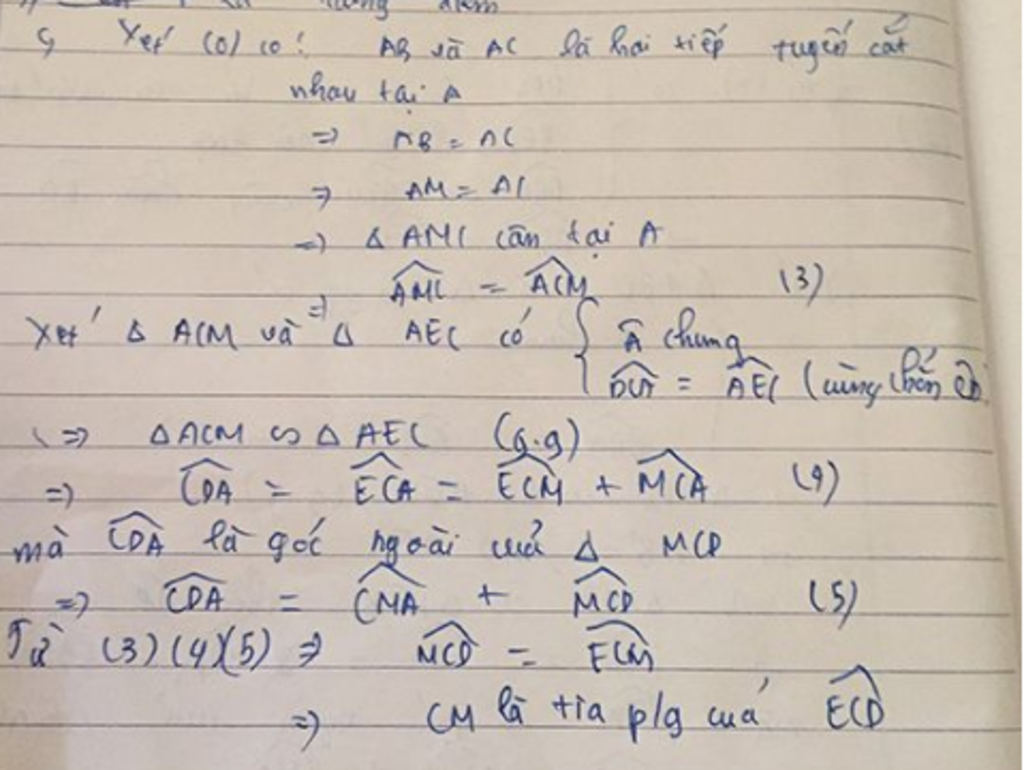 trung điểm
c, Xét (O) có: AB và AC là hai tiếp tuyến cắt
nhau tại A
=> AB = AC
=> AM = AC
=> Δ AMC cân tại A
=> \widehat{AMC} = \widehat{ACM} (3)
Xét Δ ACM và Δ AEC có { Â chung
\widehat{DCA} = \widehat{AEC} (cùng chắn \widehat{CD}
=> Δ ACM ∽ Δ AEC (g.g)
=> \widehat{CDA} = \widehat{ECA} = \widehat{ECM} + \widehat{MCA} (4)
mà \widehat{CDA} là góc ngoài của Δ MCD
=> \widehat{CDA} = \widehat{CMA} + \widehat{MCD} (5)
Từ (3)(4)(5) => \widehat{MCD} = \widehat{ECM}
=> CM là tia p/g của \widehat{ECD}